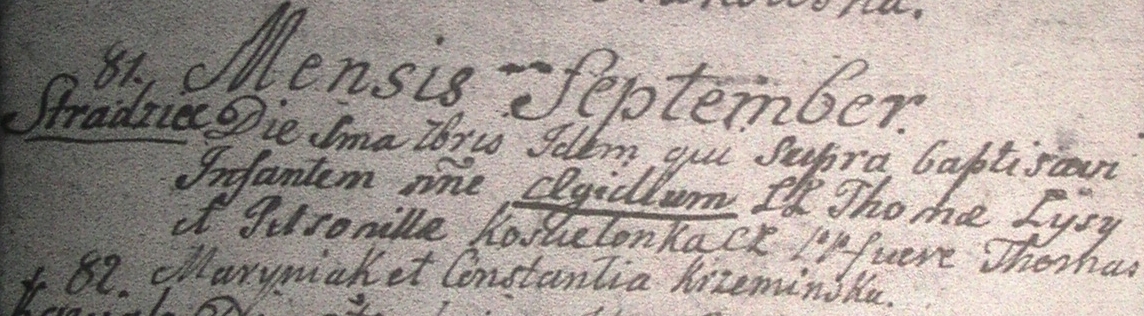 81. Mensis September.
Stradziec Die 1ma 7bris Idem qui supra baptisavi
Infantem nñe Ægidium LL Thomæ Łysy
et Petronillæ Kosvelonka CL pp fuere Thomas
82. Maryniak et Constantia Krzeminska.